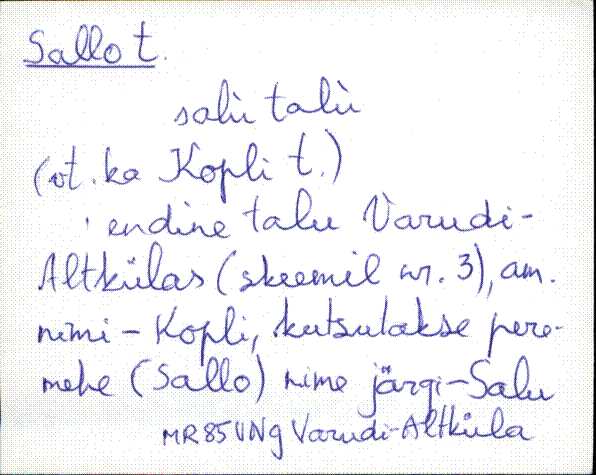 Sallo t.
salù talù
(vt. ka Kopli t.)
endine talu Varudi-
Altkülas (skeemil nr. 3), am.
nimi - Kopli, kutsutakse pere-
mehe (Sallo) nime järgi - Salu
MR 85 VNg Varudi-Altküla